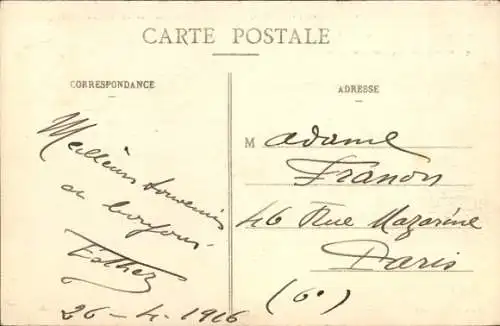 CARTE POSTALE
CORRESPONDANCE
ADRESSE
Meilleurs souvenirs
et bonjour.
Esther
26-4-1916
Madame
Franon
46 Rue Mazarine
Paris
(6e)